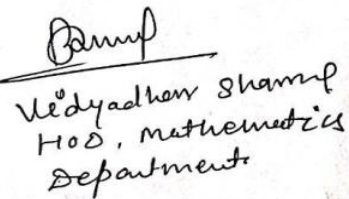 Vidyadhar Sharma
HOD, Mathematics
Department